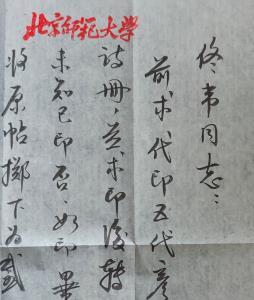 北京师范大学
佟韦同志：
前求代印五代彦
诗册，并求印后转
未知已印否，如印毕
将原帖掷下为感